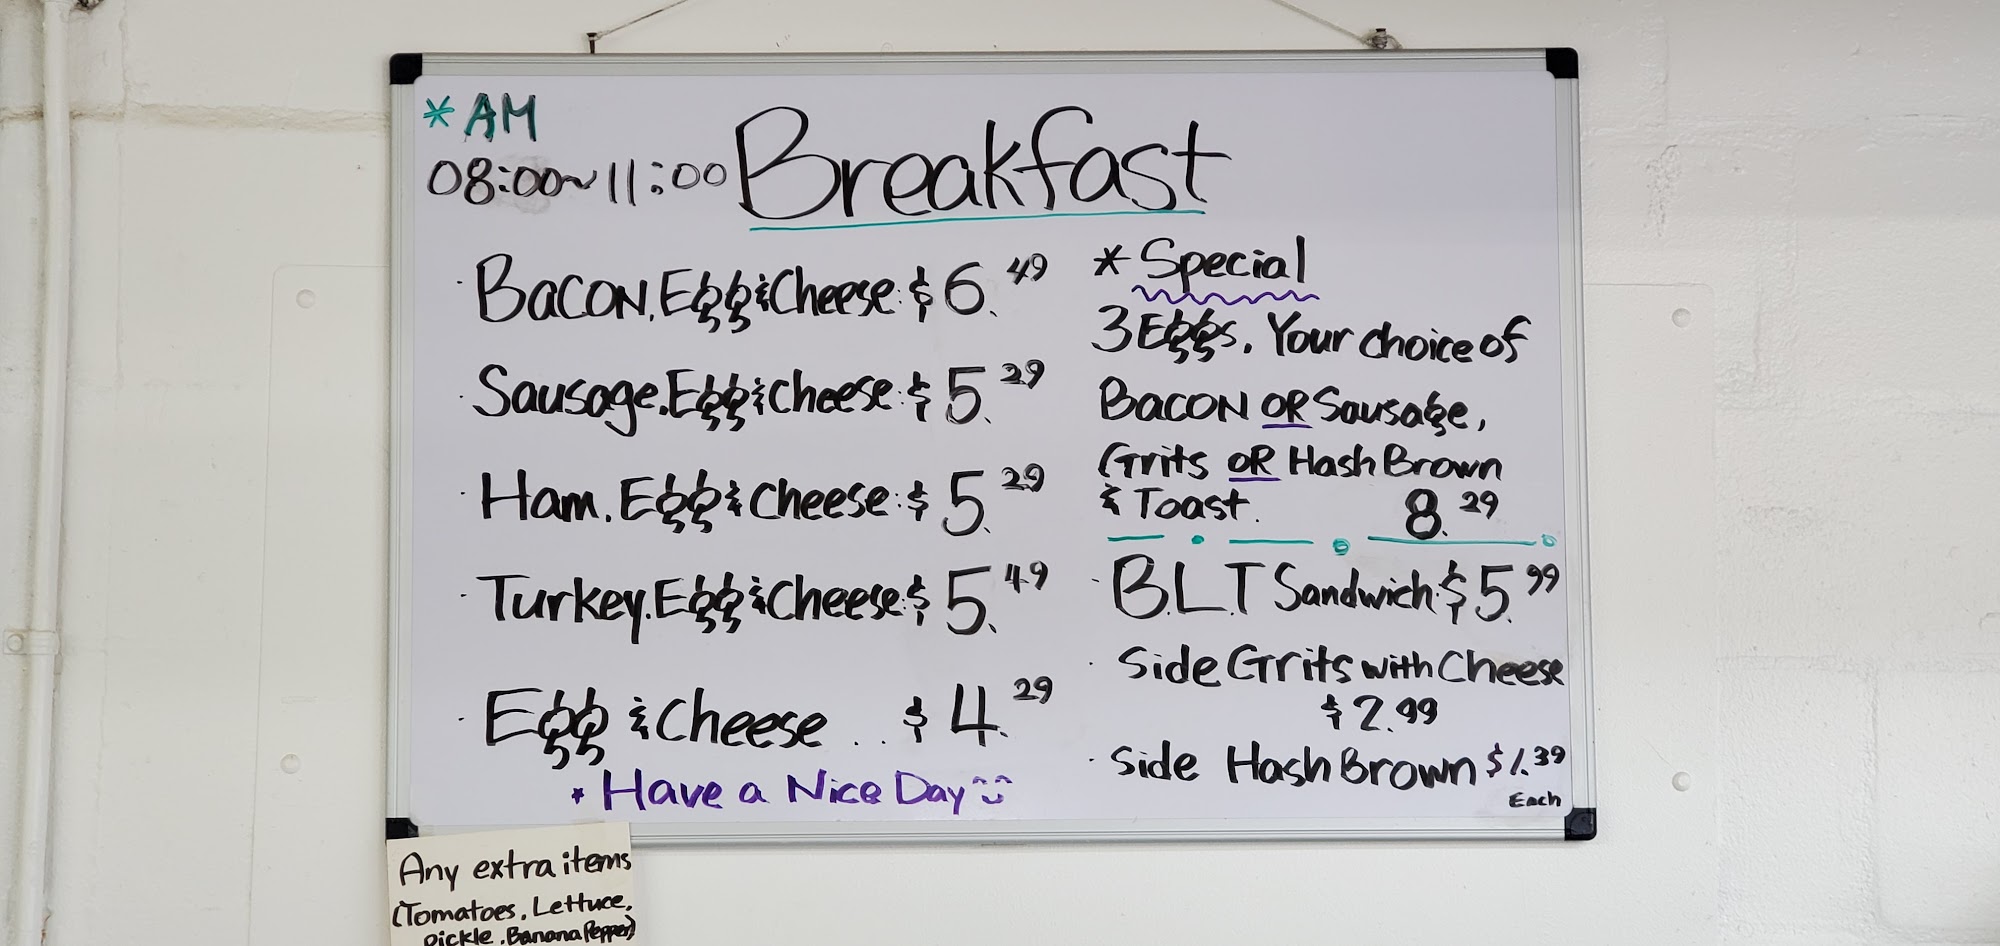 *AM
08:00~11:00 Breakfast
· Bacon, Egg & Cheese: $6.49
· Sausage, Egg & Cheese: $5.29
· Ham, Egg & Cheese: $5.29
· Turkey, Egg & Cheese: $5.49
· Egg & Cheese .. $4.29
* Have a Nice Day
* Special
3 Eggs, Your choice of
Bacon OR Sausage,
Grits OR Hash Brown
& Toast. 8.29
· B.L.T Sandwich: $5.99
· Side Grits with Cheese
$2.99
· Side Hash Brown $1.39
Each
Any extra items
(Tomatoes, Lettuce,
Pickle, Banana Pepper)